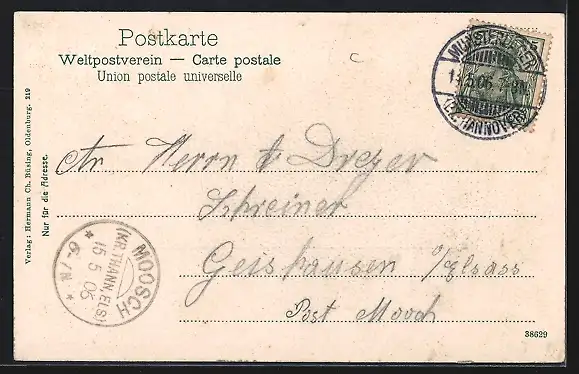 Postkarte
Weltpostverein — Carte postale
Union postale universelle
C
MUNSTERLAGER
13.5.06.
(BZ. HANNOVER)
Verlag: Hermann Ch. Büsing, Oldenburg. 219
Nur für die Adresse.
An Herrn Dreyer
Schreiner
Geishausen i/Elsass
Post Mooch
MOOSCH
(KR. THANN, ELS)
15 5 06
* 6-7N *
38629